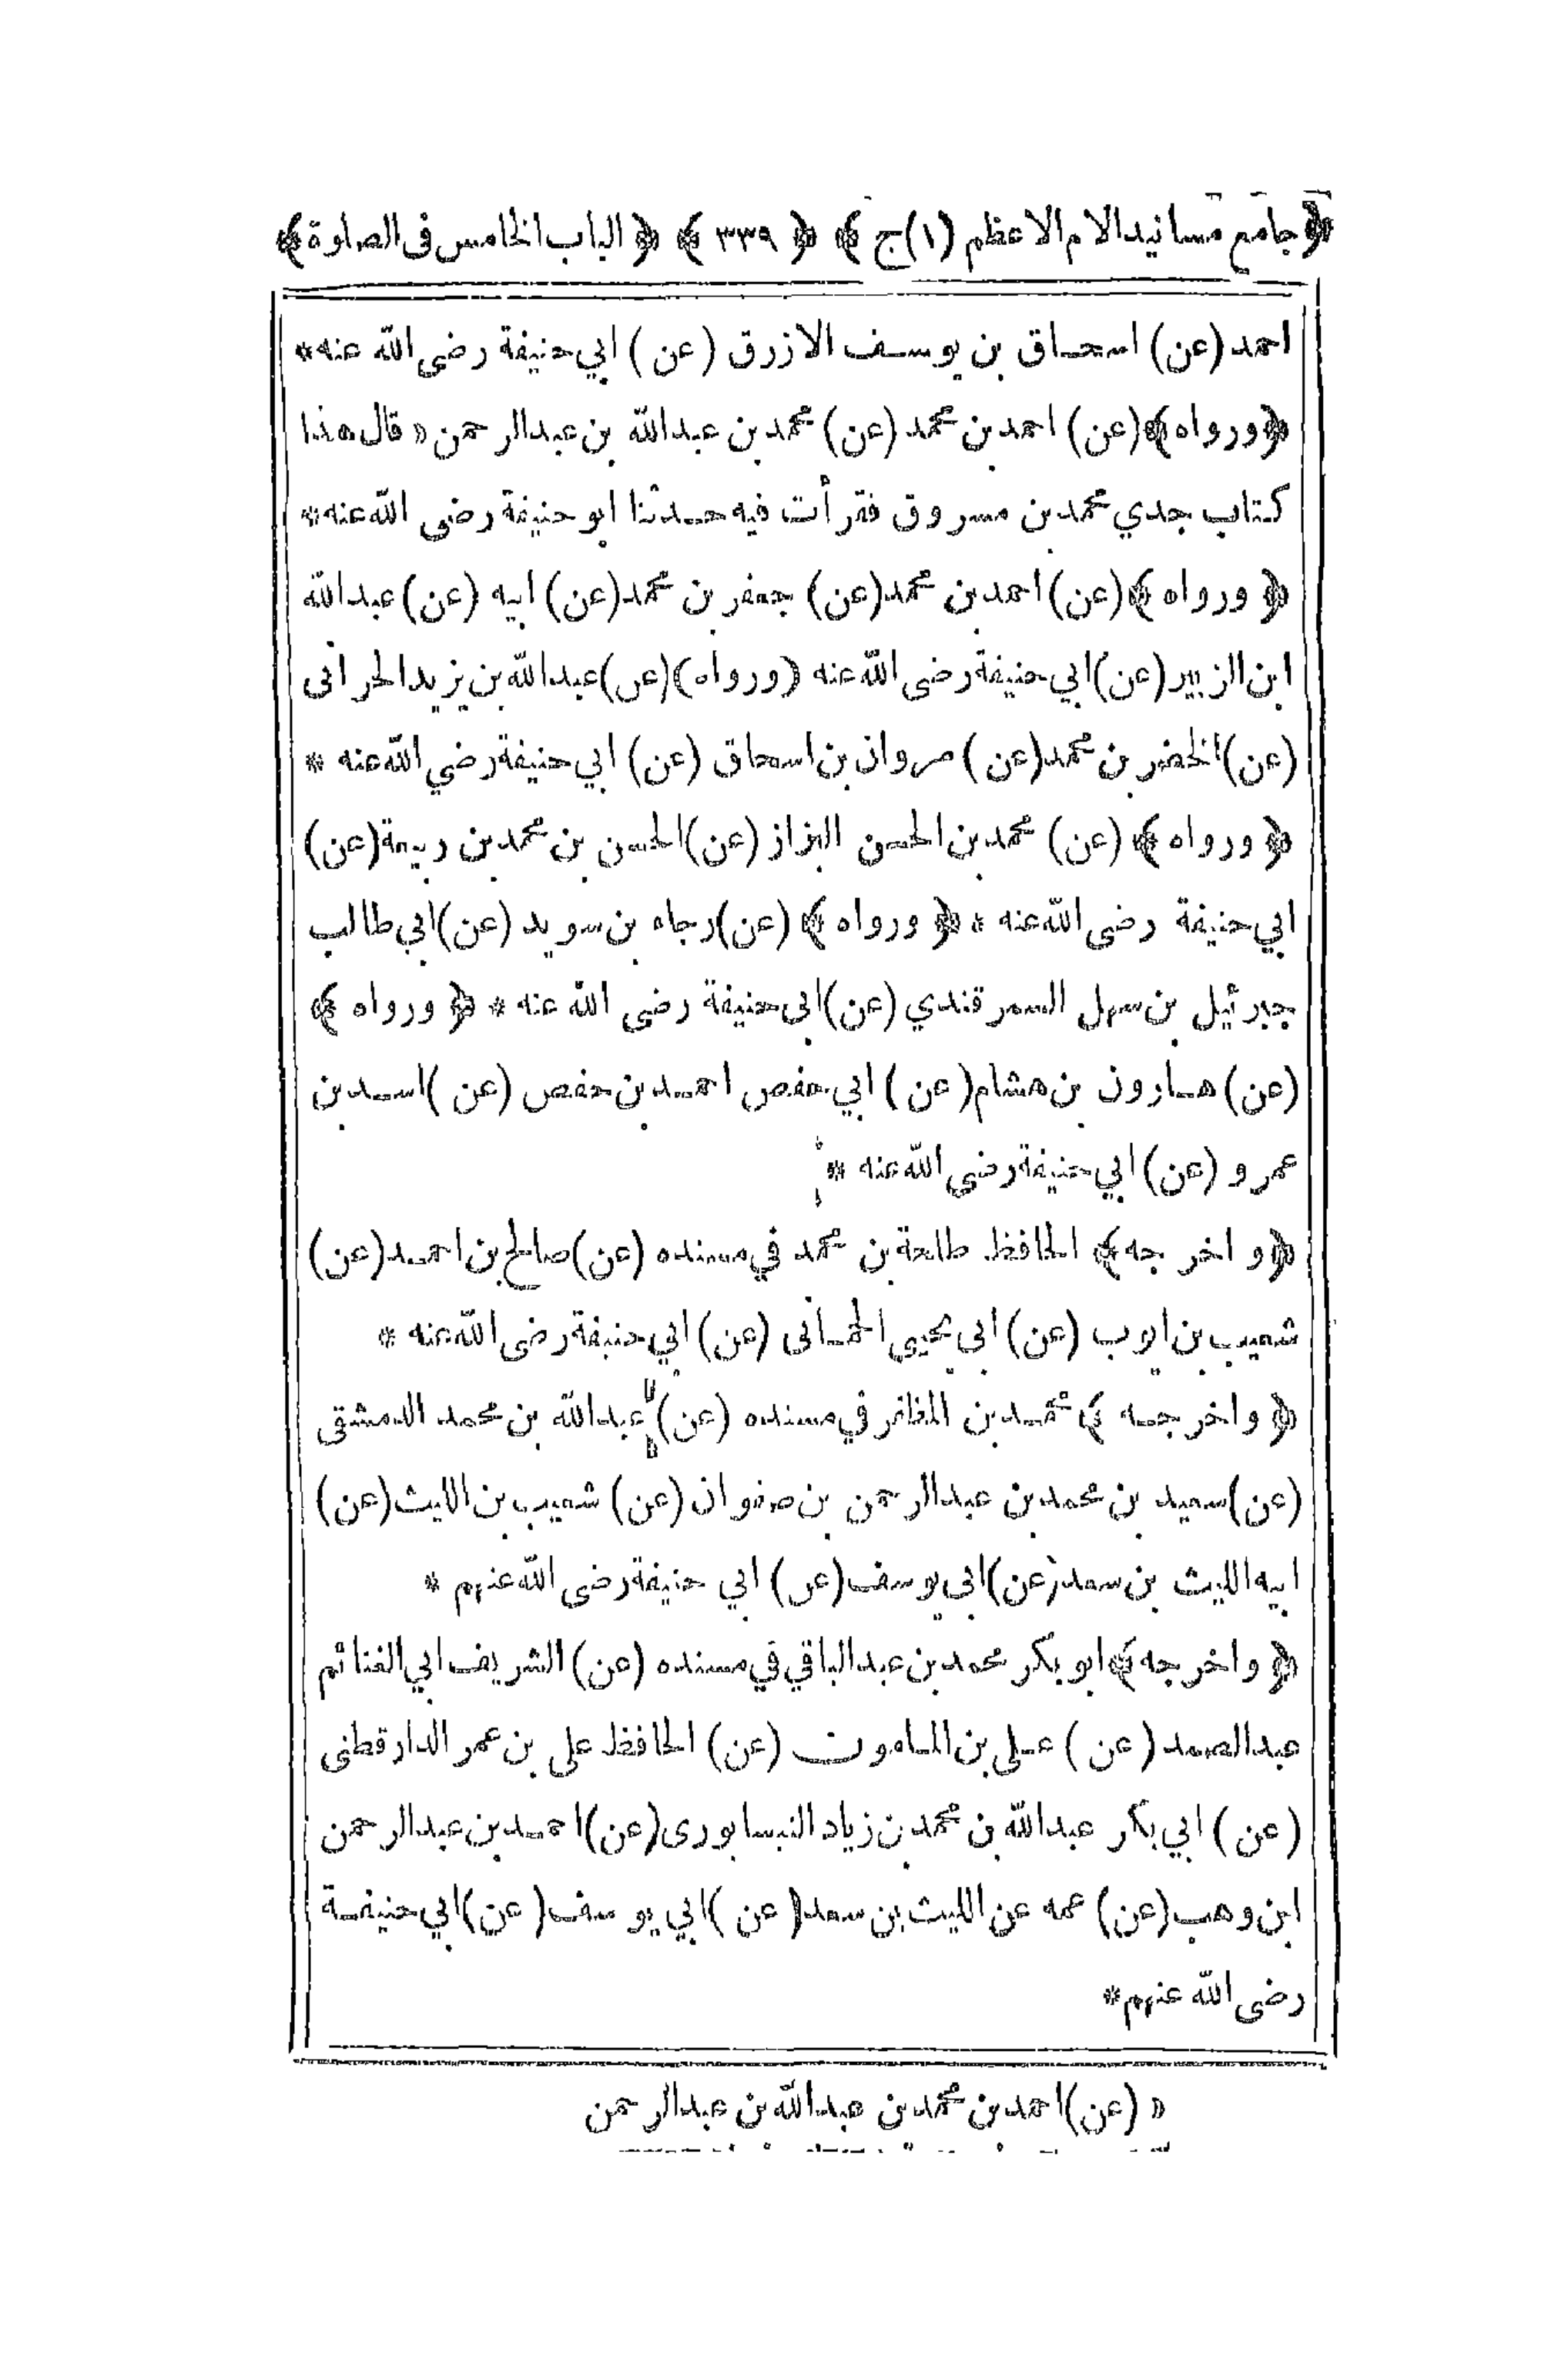 ﴿جامع مسانيد الامام الاعظم (١)ج﴾ ﴿٣٣٩﴾ ﴿الباب الخامس فى الصلوة﴾
احمد (عن) اسحاق بن يوسف الازرق (عن) ابي حنيفة رضى الله عنه*
﴿ورواه﴾ (عن) احمد بن محمد (عن) محمد بن عبدالله بن عبدالرحمن « قال هذا
كتاب جدي محمد بن مسروق فقرأت فيه حدثنا ابو حنيفة رضى الله عنه*
﴿ورواه﴾ (عن) احمد بن محمد (عن) جعفر بن محمد (عن) ابيه (عن) عبدالله
ابن الزبير (عن) ابي حنيفة رضى الله عنه (ورواه) (عن) عبدالله بن يزيد الحرانى
(عن) الخضر بن محمد (عن) مروان بن اسحاق (عن) ابي حنيفة رضي الله عنه *
﴿ورواه﴾ (عن) محمد بن الحسن البزاز (عن) الحسن بن محمد بن ربيعة (عن)
ابي حنيفة رضى الله عنه * ﴿ورواه﴾ (عن) رجاء بن سويد (عن) ابي طالب
جبرئيل بن سهل السمرقندي (عن) ابى حنيفة رضى الله عنه * ﴿ورواه﴾
(عن) هارون بن هشام (عن) ابي حفص احمد بن حفص (عن) اسد بن
عمرو (عن) ابي حنيفة رضى الله عنه *
﴿واخرجه﴾ الحافظ طلحة بن محمد في مسنده (عن) صالح بن احمد (عن)
شعيب بن ايوب (عن) ابى يحيى الحمانى (عن) ابي حنيفة رضى الله عنه *
﴿واخرجه﴾ محمد بن المظفر في مسنده (عن) عبدالله بن محمد الدمشقى
(عن) سعيد بن محمد بن عبدالرحمن بن صفوان (عن) شعيب بن الليث (عن)
ابيه الليث بن سعد (عن) ابى يوسف (عن) ابي حنيفة رضى الله عنهم *
﴿واخرجه﴾ ابو بكر محمد بن عبدالباقي في مسنده (عن) الشريف ابي الغنائم
عبدالصمد (عن) علي بن المامون (عن) الحافظ على بن عمر الدارقطنى
(عن) ابي بكر عبدالله بن محمد بن زياد النيسابورى (عن) احمد بن عبدالرحمن
ابن وهب (عن) عمه عن الليث بن سعد (عن) ابي يوسف (عن) ابي حنيفة
رضى الله عنهم*
« (عن) احمد بن محمد بن عبدالله بن عبدالرحمن